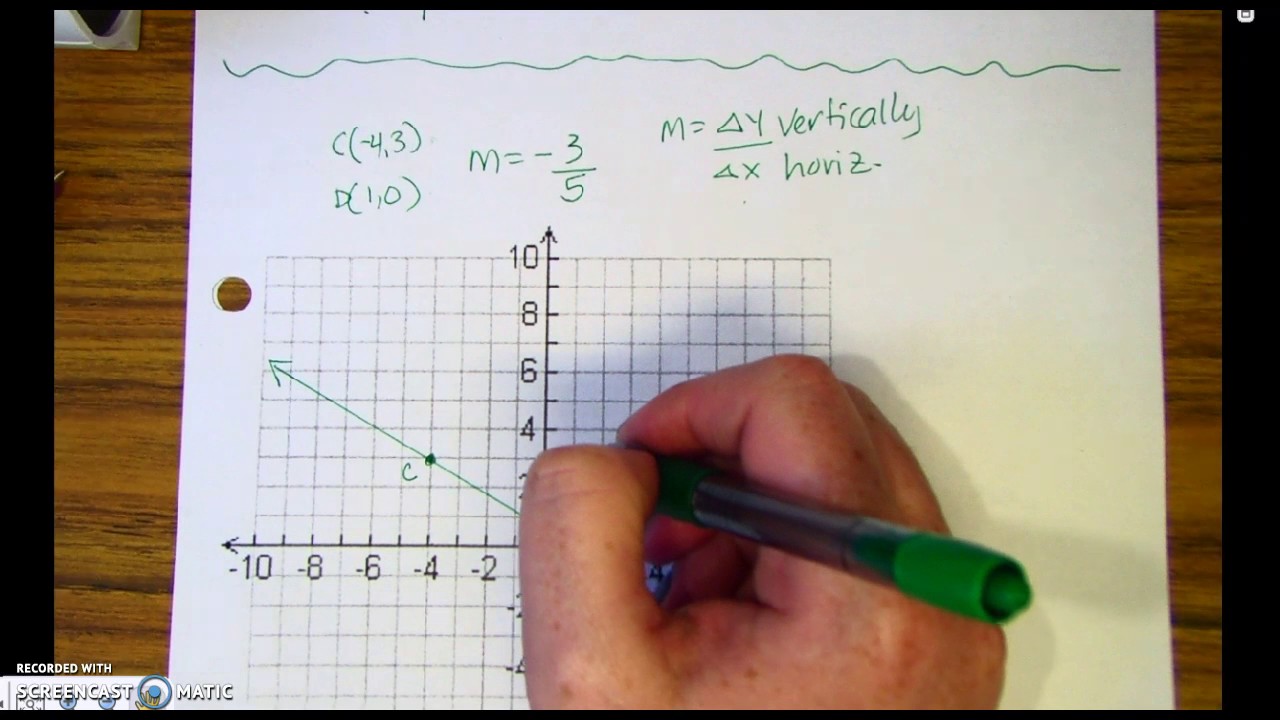 C(-4,3)
D(1,0)
m = - 3/5
M = ΔY vertically
ΔX horiz.
10
8
6
4
C
-10 -8 -6 -4 -2
4
RECORDED WITH
SCREENCAST MATIC